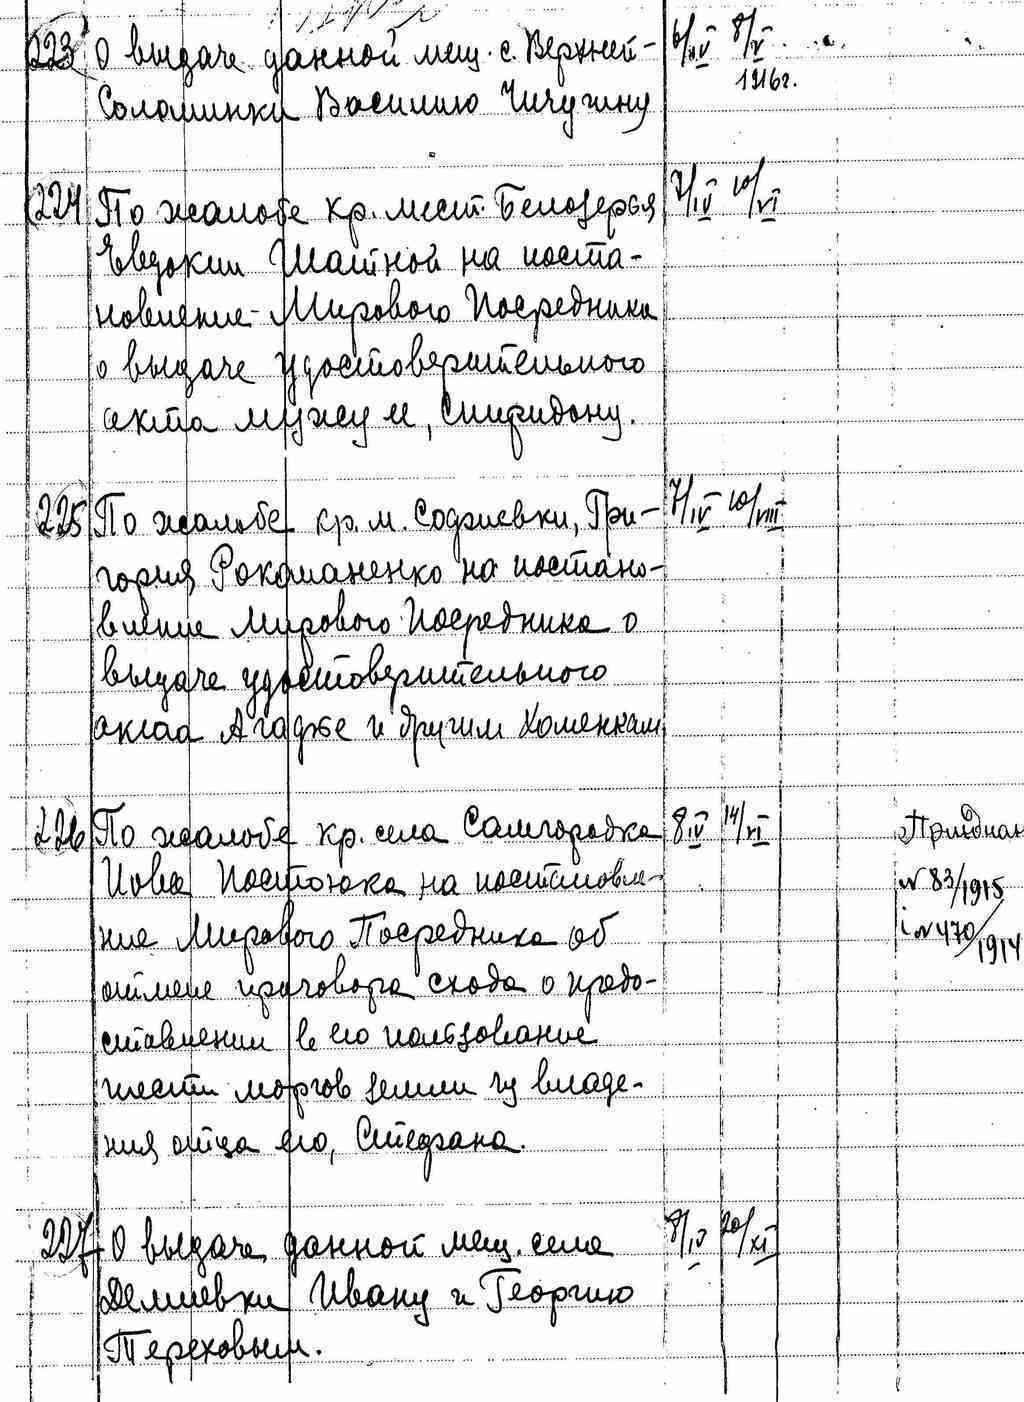 223 О выдаче данной мещ. с. Верхней- 6/IV 8/V
Соломинки Василию Чичугину 1916г.
224 По жалобе кр. мест. Белозерья 7/IV 10/VI
Евдокии Шаитной на поста-
новление Мирового Посредника
о выдаче удостоверительного
акта мужу ее, Спиридону.
225 По жалобе кр. м. Софиевки, Гри- 7/IV 10/VIII
гория Рокоманенко на постано-
вление Мирового Посредника о
выдаче удостоверительного
акта Агафье и другим Хоменкам
226 По жалобе кр. села Самгородка 8/IV 14/VI Приєднан
Иова Постоюка на постановле- № 83/1915
ние Мирового Посредника об і № 470/1914
отмене приговора схода о предо-
ставлении в его пользование
шести моргов земли из владе-
ния отца его, Стефана.
227 О выдаче данной мещ. села 8/IV 20/XI
Демиевки Ивану и Георгию
Тереховым.